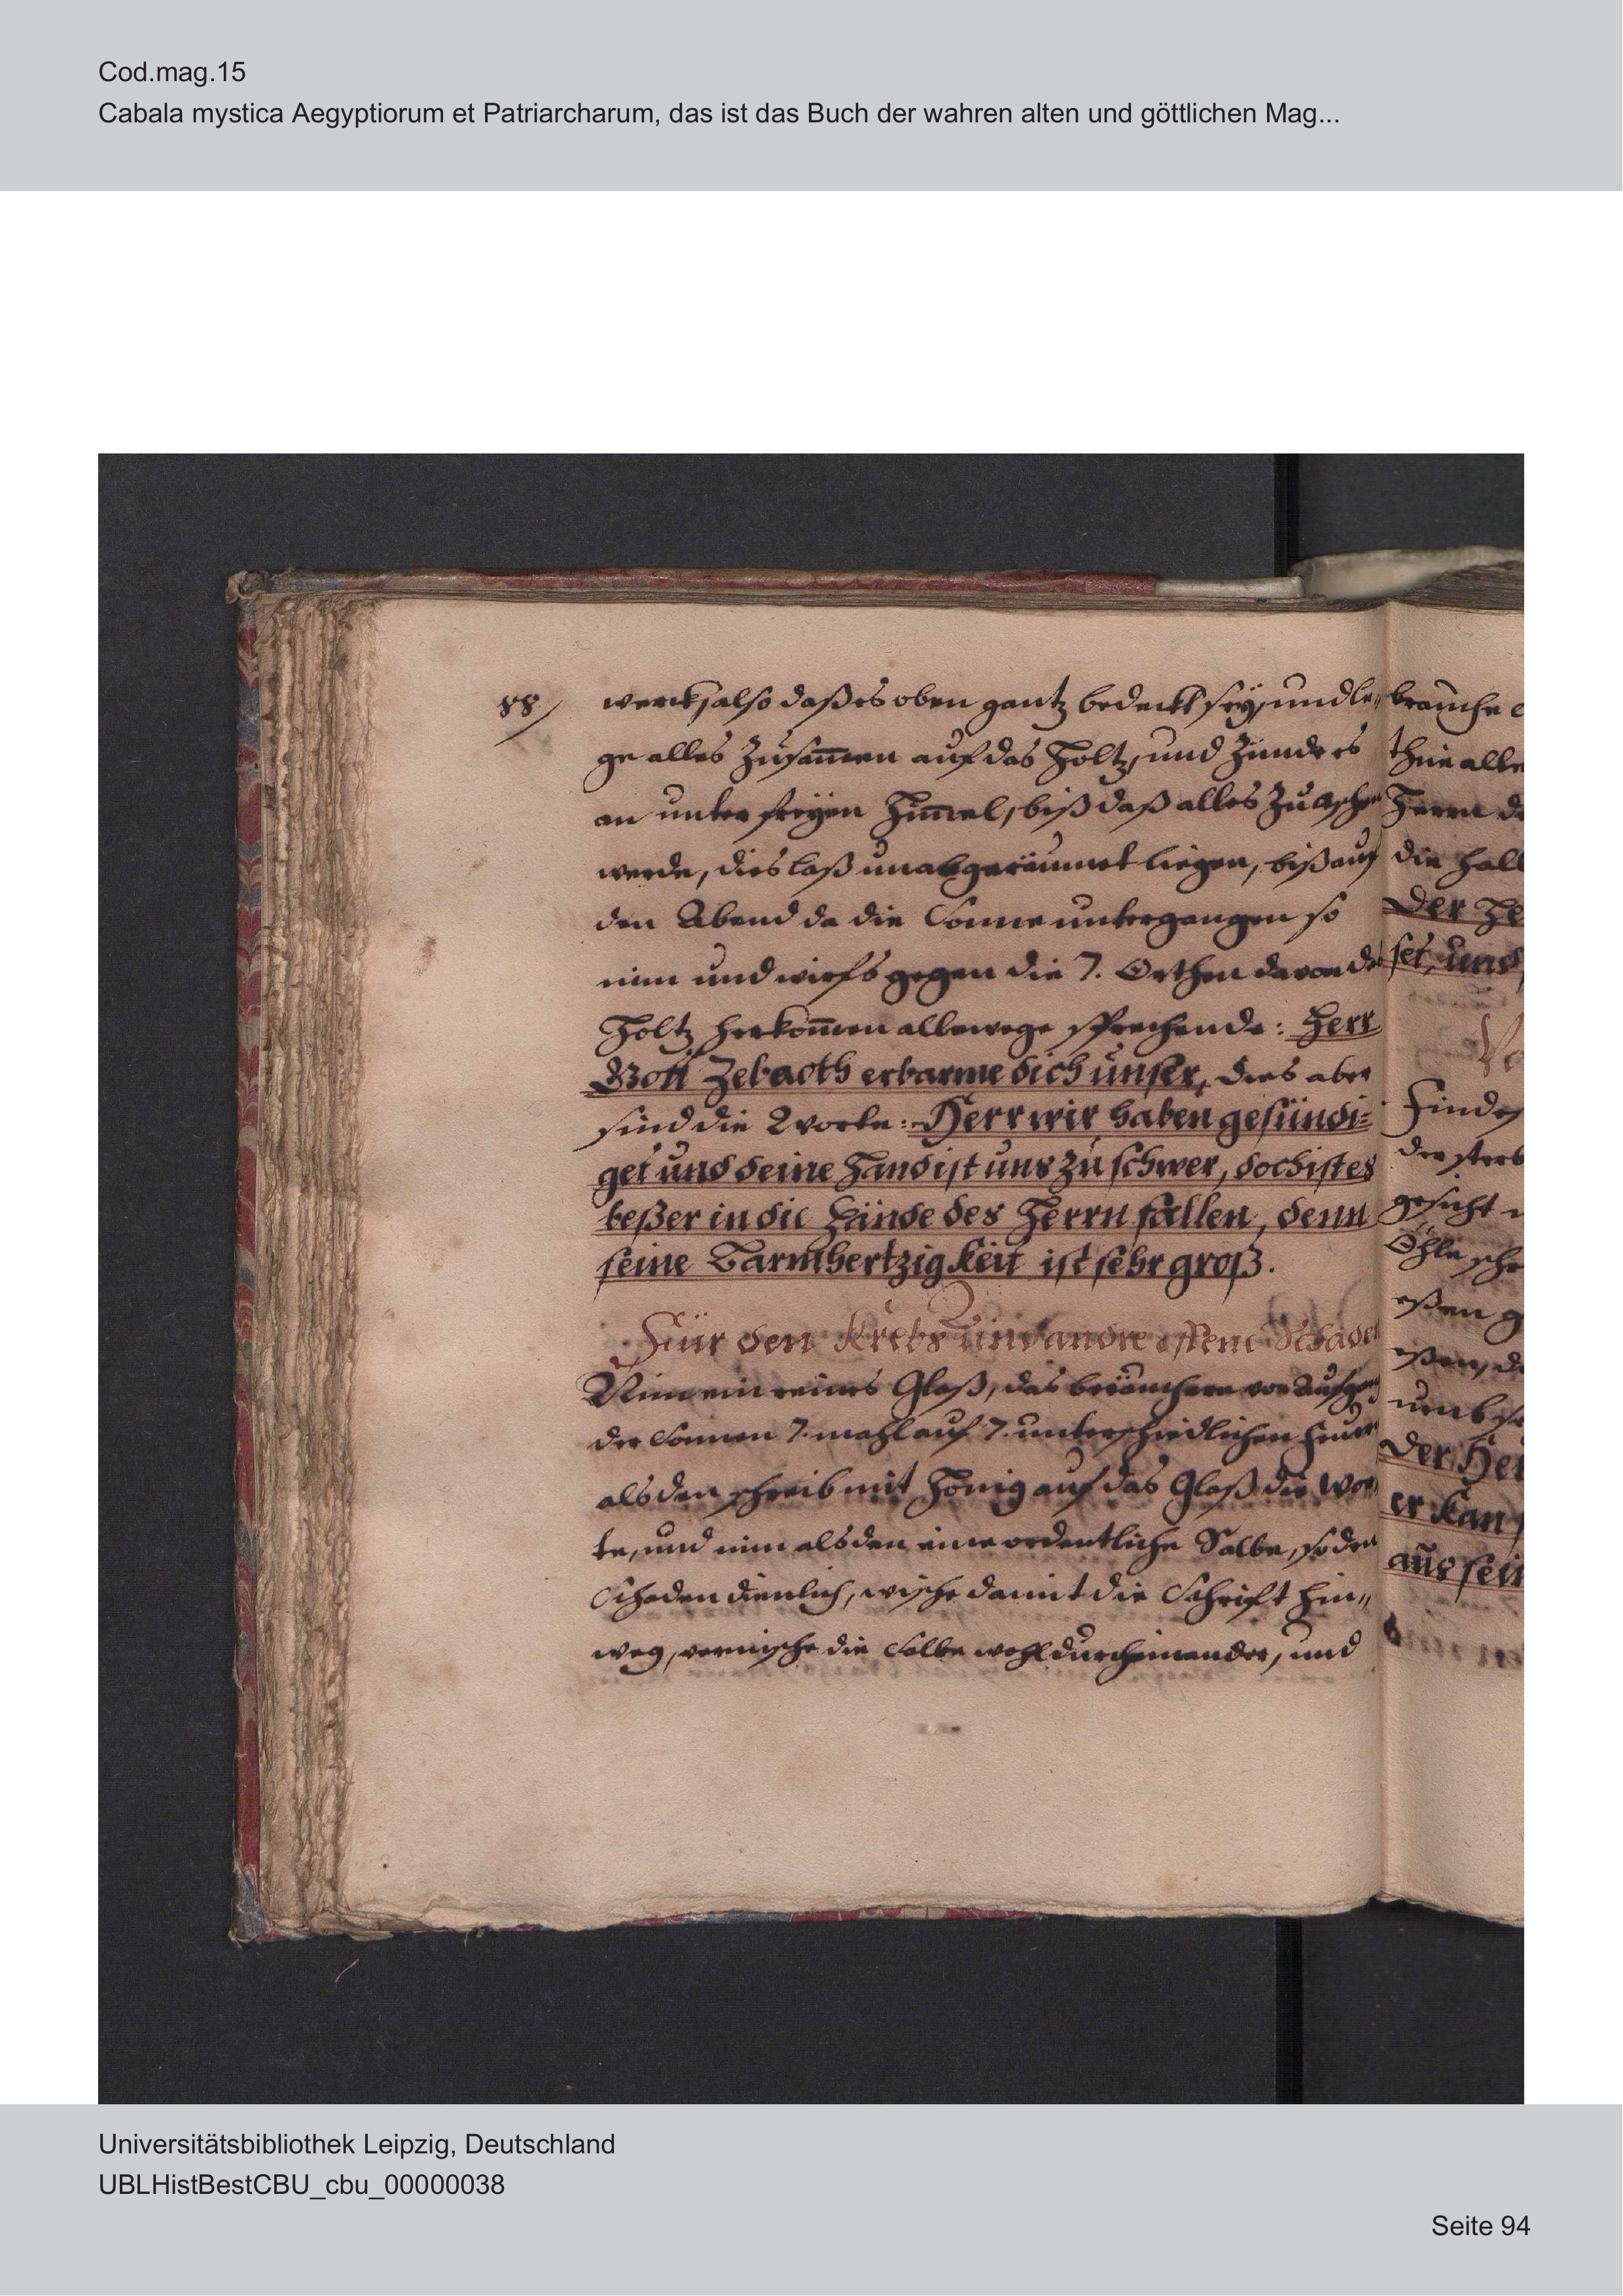 Cod.mag.15
Cabala mystica Aegyptiorum et Patriarcharum, das ist das Buch der wahren alten und göttlichen Mag...
88/
werck, also daß es oben gantz bedeckt seÿ, und le„
ge alles zusam̅en auf das Holtz, und zünde es
an unter freÿen Him̅el, biß daß alles zu Aschen
werde, dies laß unabgeräumet liegen, biß auf
den Abend da die Sonne untergangen so
nim und wirfs gegen die 7. Orthen davon das
Holtz herkom̅en allewege sprechende: Herr
Gott Zebaoth erbarme dich unser, dies aber
sind die Worte: Herr wir haben gesündi=
get und deine Hand ist uns zu schwer, doch ist es
beßer in die Hände des Herrn fallen, denn
seine Barmhertzigkeit ist sehr groß.
Für den Krebs und andre offene Schäden
Nim ein reines Glaß, das beräuchere vor Aufgang
der Sonnen 7. mahl auf 7. unterschiedlichen Feuer
als den schreib mit Honig auf das Glaß die Wor„
te, und nim als den eine ordentliche Salbe, so den
Schaden dienlich, wische damit die Schrift hin„
weg, vermische die Salbe wohl durcheinander, und
brauche
thue alle
Herrn
die
Der
set, und
Finde
gesicht
Öhle
eßen
eßen,
umb
Der
er kan
aus sein
Universitätsbibliothek Leipzig, Deutschland
UBLHistBestCBU_cbu_00000038
Seite 94